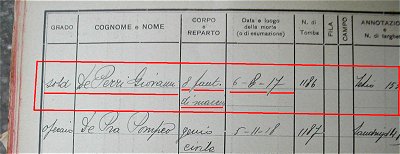 GRADO COGNOME e NOME CORPO e REPARTO Data e luogo della morte (o di esumazione) N. di Tomba FILA CAMPO ANNOTAZIO
N. di targhet
sold De Perri Giovanni 8 fant. 6-8-17 1186
di marcia
operaio De Pra Pompeo genio 5-11-18 1187
civile